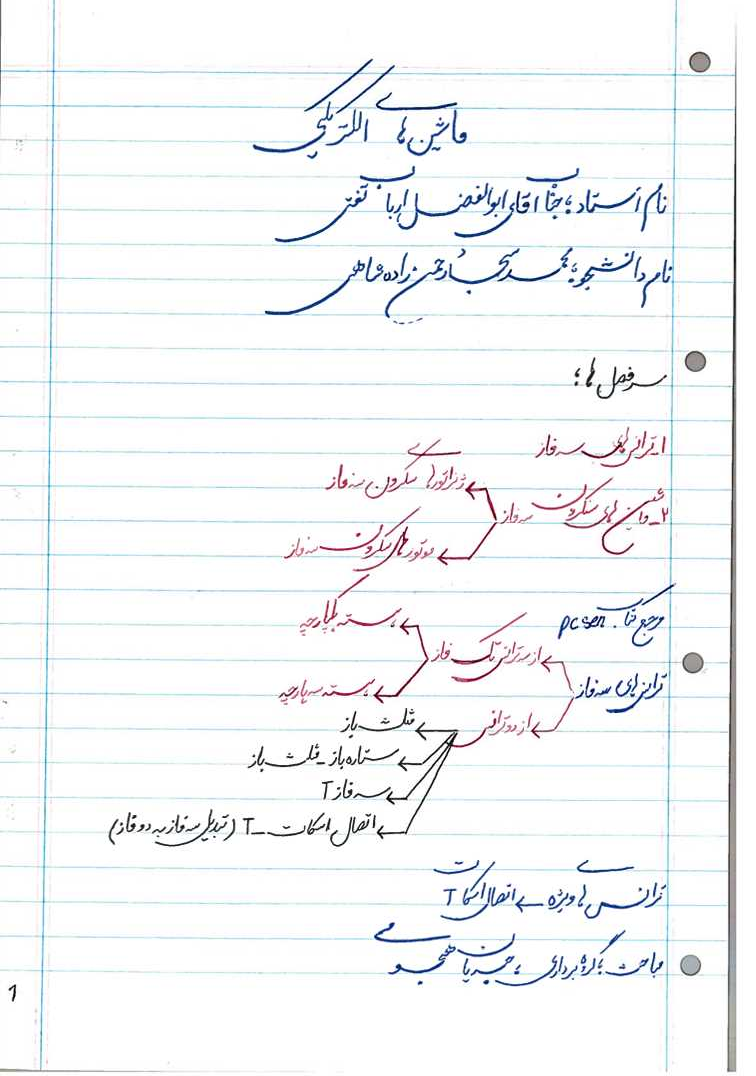 ماشین های الکتریکی
نام استاد: جناب آقای ابوالفضل ارباب تفتی
نام دانشجو: محمد سجاد رحمن زاده شاهی
سرفصل ها:
۱_ترانس های سه فاز
ژنراتورهای سنکرون سه فاز
۲_ماشین های سنکرون سه فاز
موتورهای سنکرون سه فاز
مرجع کتاب: pcsen
هسته یکپارچه
از سه ترانس تک فاز
ترانس های سه فاز
هسته سه پارچه
از دو ترانس
مثلث باز
ستاره باز _ مثلث باز
سه فاز T
اتصال اسکات _ T (تبدیل سه فاز به دو فاز)
ترانس های ویژه ← اتصال اسکات T
مباحث: گروه برداری، جریان هجومی
1